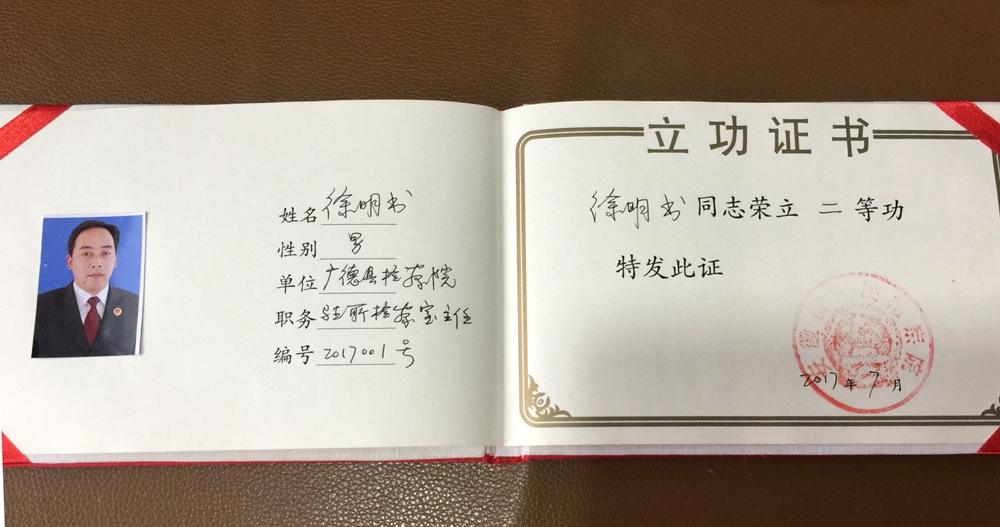 姓名 徐明书
性别 男
单位 广德县检察院
职务 驻所检察室主任
编号 2017001号
立功证书
徐明书 同志荣立 二 等功
特发此证
2017年7月